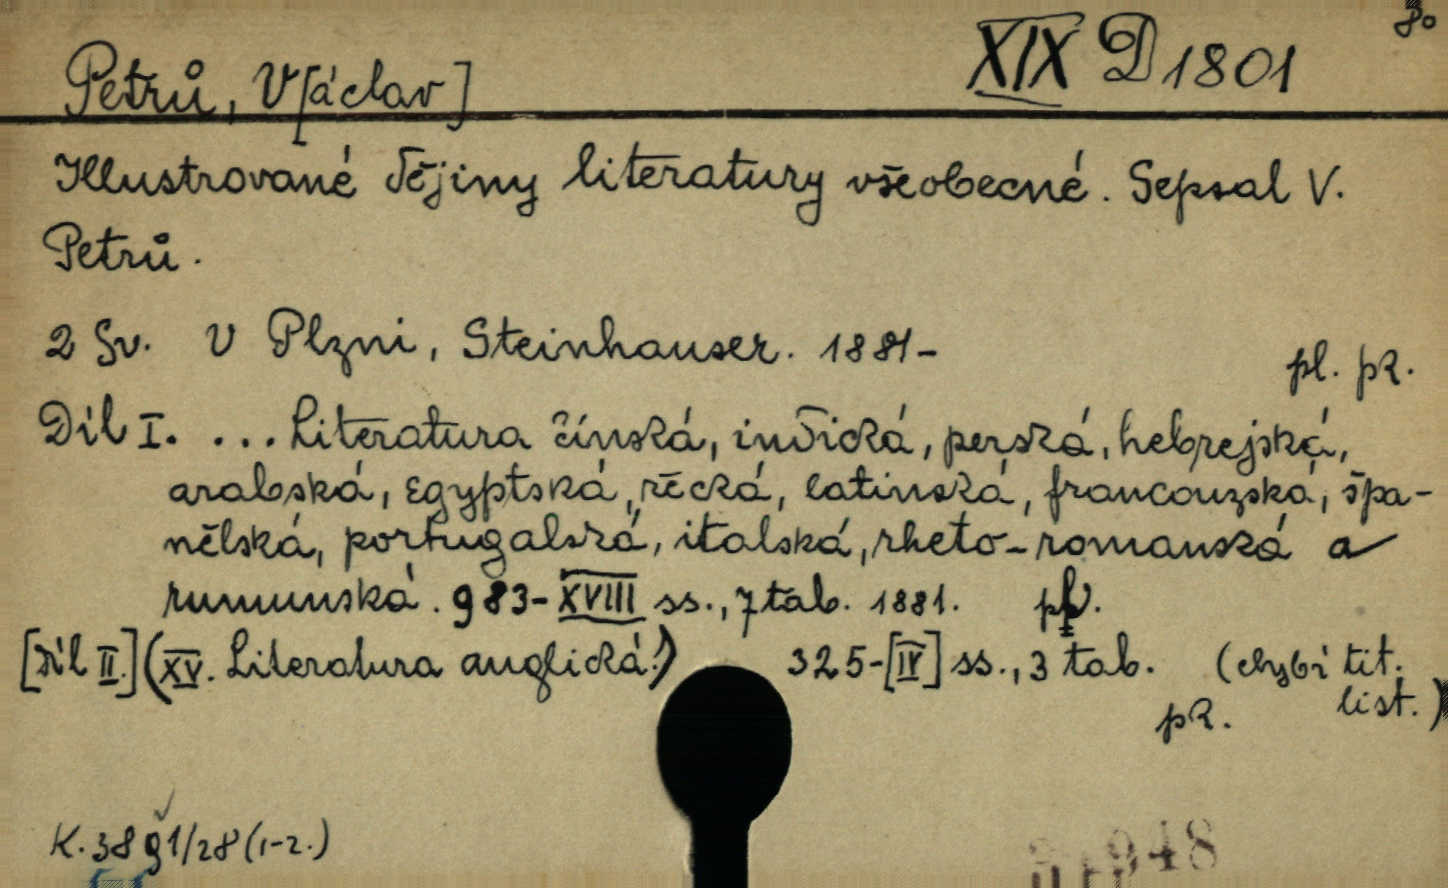 8°
XIX D 1801
Petrů, V[áclav]
Illustrované dějiny literatury všeobecné. Sepsal V.
Petrů.
2 Sv. V Plzni, Steinhauser. 1881-
pl. pk.
Díl I. ... Literatura čínská, indická, perská, hebrejská,
arabská, egyptská, řecká, latinská, francouzská, špa-
nělská, portugalská, italská, rheto-romanská a
rumunská. 983-XVIII ss., 7 tab. 1881.
[Díl II.] (XV. Literatura anglická.) 325-[IV] ss., 3 tab. (chybí tit.
list.)
pk.
K. 3891/28 (1-2.)